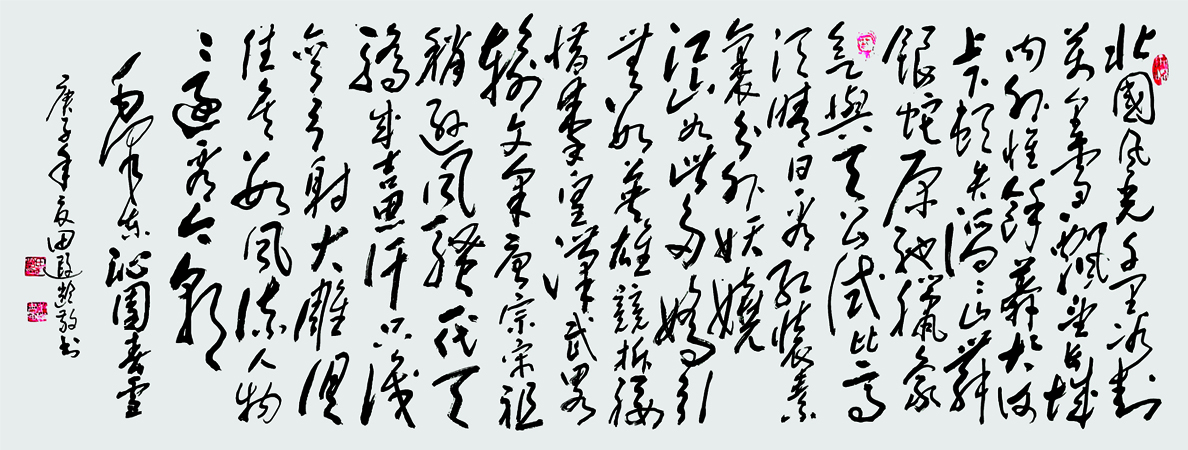 北國风光千里冰封
萬里雪飘望長城
内外惟餘莽莽大河
上下頓失滔滔山舞
银蛇原驰臘象
欲與天公試比高
须晴日看红装素
裹分外妖嬈
江山如此多嬌引
無数英雄競折腰
惜秦皇漢武畧
輸文采唐宗宋祖
稍逊风骚一代天
驕成吉思汗只识
弯弓射大雕俱
往矣数风流人物
还看今朝
毛泽东沁園春雪
庚子年夏田遐齡敬书